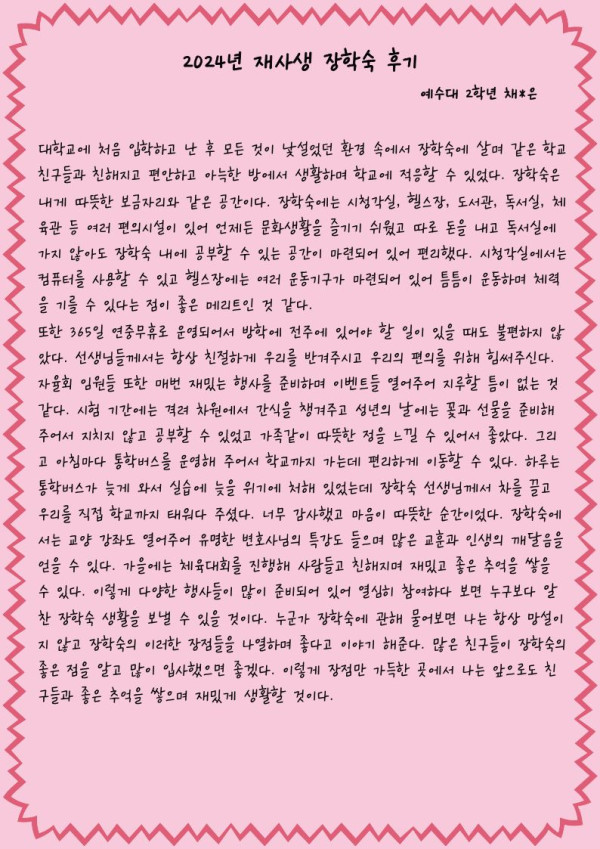 2024년 재사생 장학숙 후기
예수대 2학년 채*은
대학교에 처음 입학하고 난 후 모든 것이 낯설었던 환경 속에서 장학숙에 살며 같은 학교
친구들과 친해지고 편안하고 아늑한 방에서 생활하며 학교에 적응할 수 있었다. 장학숙은
내게 따뜻한 보금자리와 같은 공간이다. 장학숙에는 시청각실, 헬스장, 도서관, 독서실, 체
육관 등 여러 편의시설이 있어 언제든 문화생활을 즐기기 쉬웠고 따로 돈을 내고 독서실에
가지 않아도 장학숙 내에 공부할 수 있는 공간이 마련되어 있어 편리했다. 시청각실에서는
컴퓨터를 사용할 수 있고 헬스장에는 여러 운동기구가 마련되어 있어 틈틈이 운동하며 체력
을 기를 수 있다는 점이 좋은 메리트인 것 같다.
또한 365일 연중무휴로 운영되어서 방학에 전주에 있어야 할 일이 있을 때도 불편하지 않
았다. 선생님들께서는 항상 친절하게 우리를 반겨주시고 우리의 편의를 위해 힘써주신다.
자율회 임원들 또한 매번 재밌는 행사를 준비하며 이벤트들 열어주어 지루할 틈이 없는 것
같다. 시험 기간에는 격려 차원에서 간식을 챙겨주고 성년의 날에는 꽃과 선물을 준비해
주어서 지치지 않고 공부할 수 있었고 가족같이 따뜻한 정을 느낄 수 있어서 좋았다. 그리
고 아침마다 통학버스를 운영해 주어서 학교까지 가는데 편리하게 이동할 수 있다. 하루는
통학버스가 늦게 와서 실습에 늦을 위기에 처해 있었는데 장학숙 선생님께서 차를 끌고
우리를 직접 학교까지 태워다 주셨다. 너무 감사했고 마음이 따뜻한 순간이었다. 장학숙에
서는 교양 강좌도 열어주어 유명한 변호사님의 특강도 들으며 많은 교훈과 인생의 깨달음을
얻을 수 있다. 가을에는 체육대회를 진행해 사람들과 친해지며 재밌고 좋은 추억을 쌓을
수 있다. 이렇게 다양한 행사들이 많이 준비되어 있어 열심히 참여하다 보면 누구보다 알
찬 장학숙 생활을 보낼 수 있을 것이다. 누군가 장학숙에 관해 물어보면 나는 항상 망설이
지 않고 장학숙의 이러한 장점들을 나열하며 좋다고 이야기 해준다. 많은 친구들이 장학숙의
좋은 점을 알고 많이 입사했으면 좋겠다. 이렇게 장점만 가득한 곳에서 나는 앞으로도 친
구들과 좋은 추억을 쌓으며 재밌게 생활할 것이다.